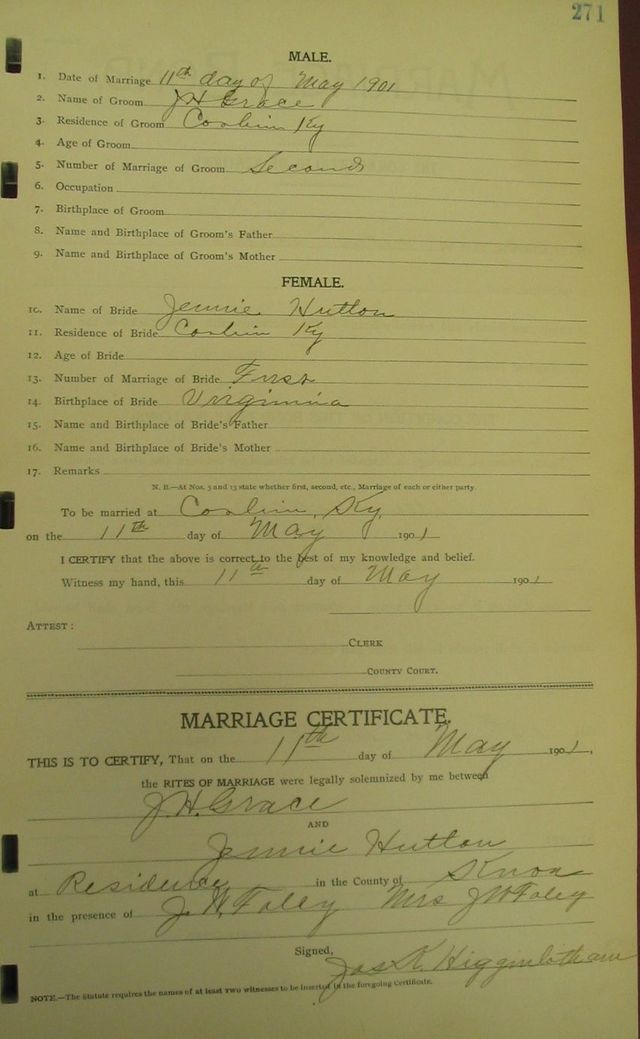 271
MALE.
1. Date of Marriage 11th day of May 1901
2. Name of Groom J H Grace
3. Residence of Groom Corbin Ky
4. Age of Groom
5. Number of Marriage of Groom Second
6. Occupation
7. Birthplace of Groom
8. Name and Birthplace of Groom's Father
9. Name and Birthplace of Groom's Mother
FEMALE.
10. Name of Bride Jennie Hutton
11. Residence of Bride Corbin Ky
12. Age of Bride
13. Number of Marriage of Bride First
14. Birthplace of Bride Virginnia
15. Name and Birthplace of Bride's Father
16. Name and Birthplace of Bride's Mother
17. Remarks
N. B.—At Nos. 5 and 13 state whether first, second, etc., Marriage of each or either party.
To be married at Corbin, Ky.
on the 11th day of May 1901
I CERTIFY that the above is correct to the best of my knowledge and belief.
Witness my hand, this 11th day of May 1901
ATTEST:
CLERK
COUNTY COURT.
MARRIAGE CERTIFICATE.
THIS IS TO CERTIFY, That on the 11th day of May 1901,
the RITES OF MARRIAGE were legally solemnized by me between
J. H. Grace
AND
Jennie Hutton
at Residence in the County of Knox
in the presence of J. W. Foley Mrs J W Foley
Signed, Jas. K. Higginbotham
NOTE.—The Statute requires the names of at least two witnesses to be inserted in the foregoing Certificate.